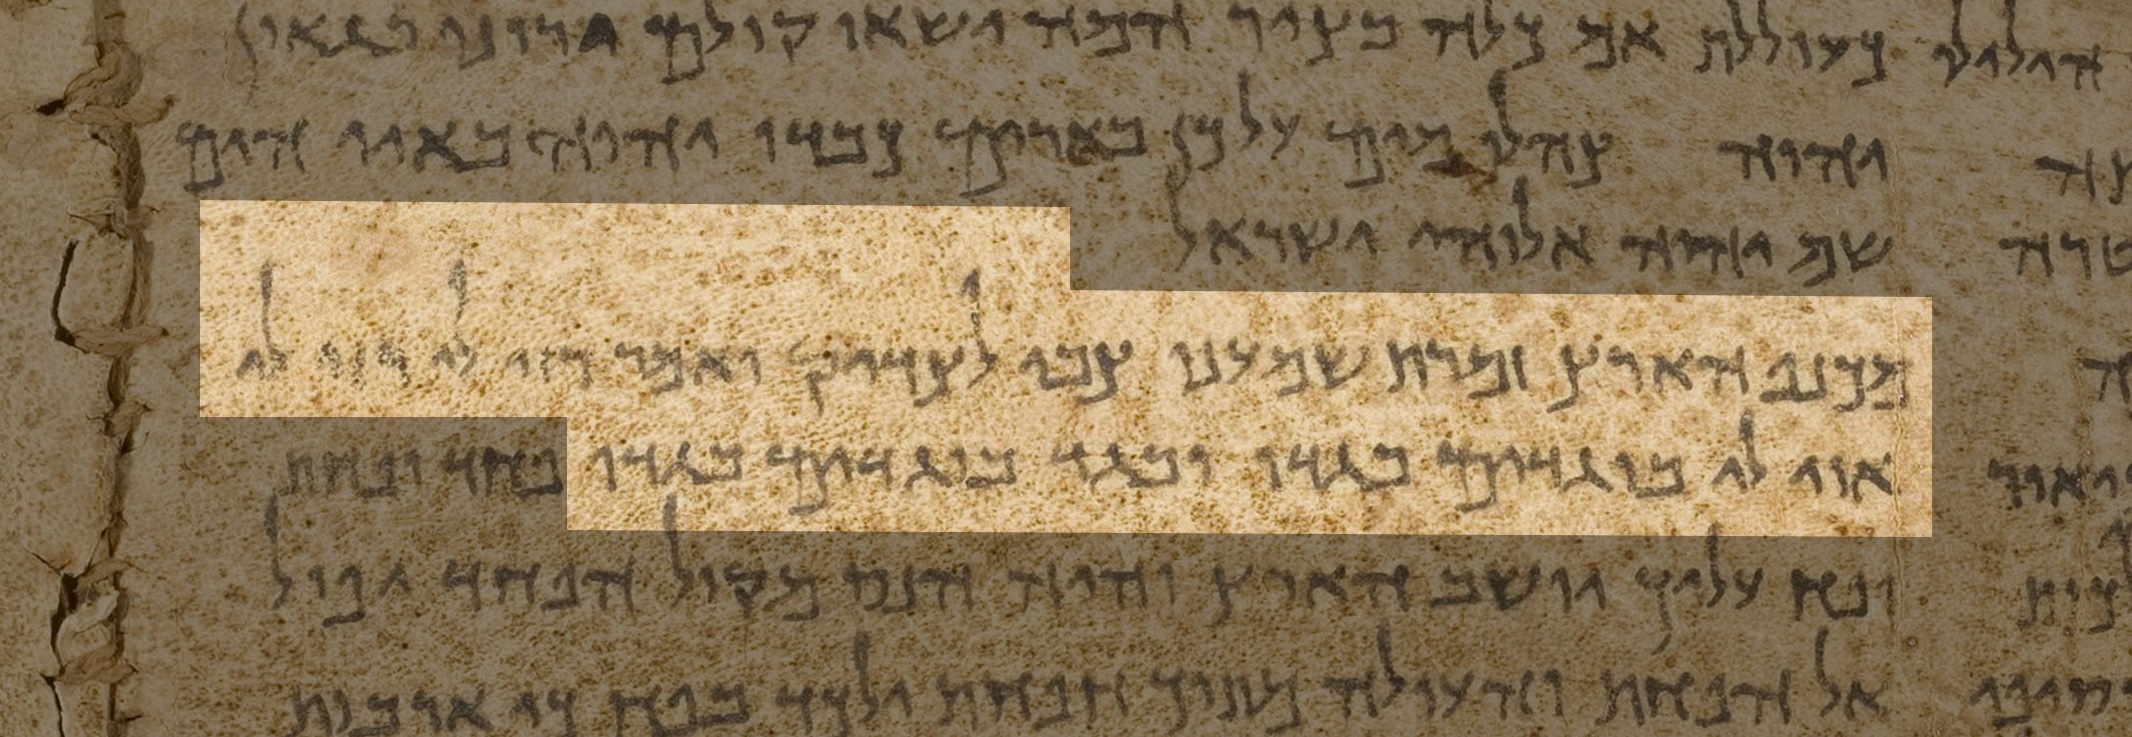 כעוללת אם כלה בציר המה ישאו קולם ירונו בגאון
יהוה צהלו מים על כן בארים כבדו יהוה באיי הים
שם יהוה אלוהי ישראל
מכנף הארץ זמרת שמענו צבי לצדיק ואמר רזי לי רזי לי
אוי לי בוגדים בגדו ובגד בוגדים בגדו פחד ופחת
ופח עליך יושב הארץ והיה הנס מקול הפחד יפול
אל הפחת והעולה מתוך הפחת ילכד בפח כי ארבות